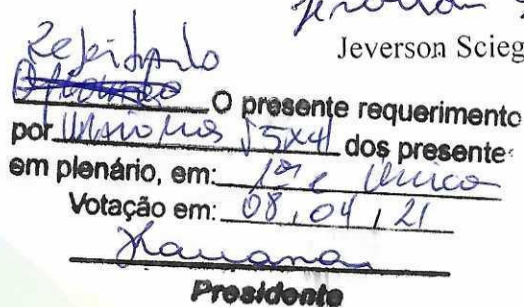 Jeverson Scieg
Rejeitado
Aprovado O presente requerimento
por Maioria 5x4 dos presente
em plenário, em: 1ª e Unica
Votação em: 08, 04, 21
Presidente